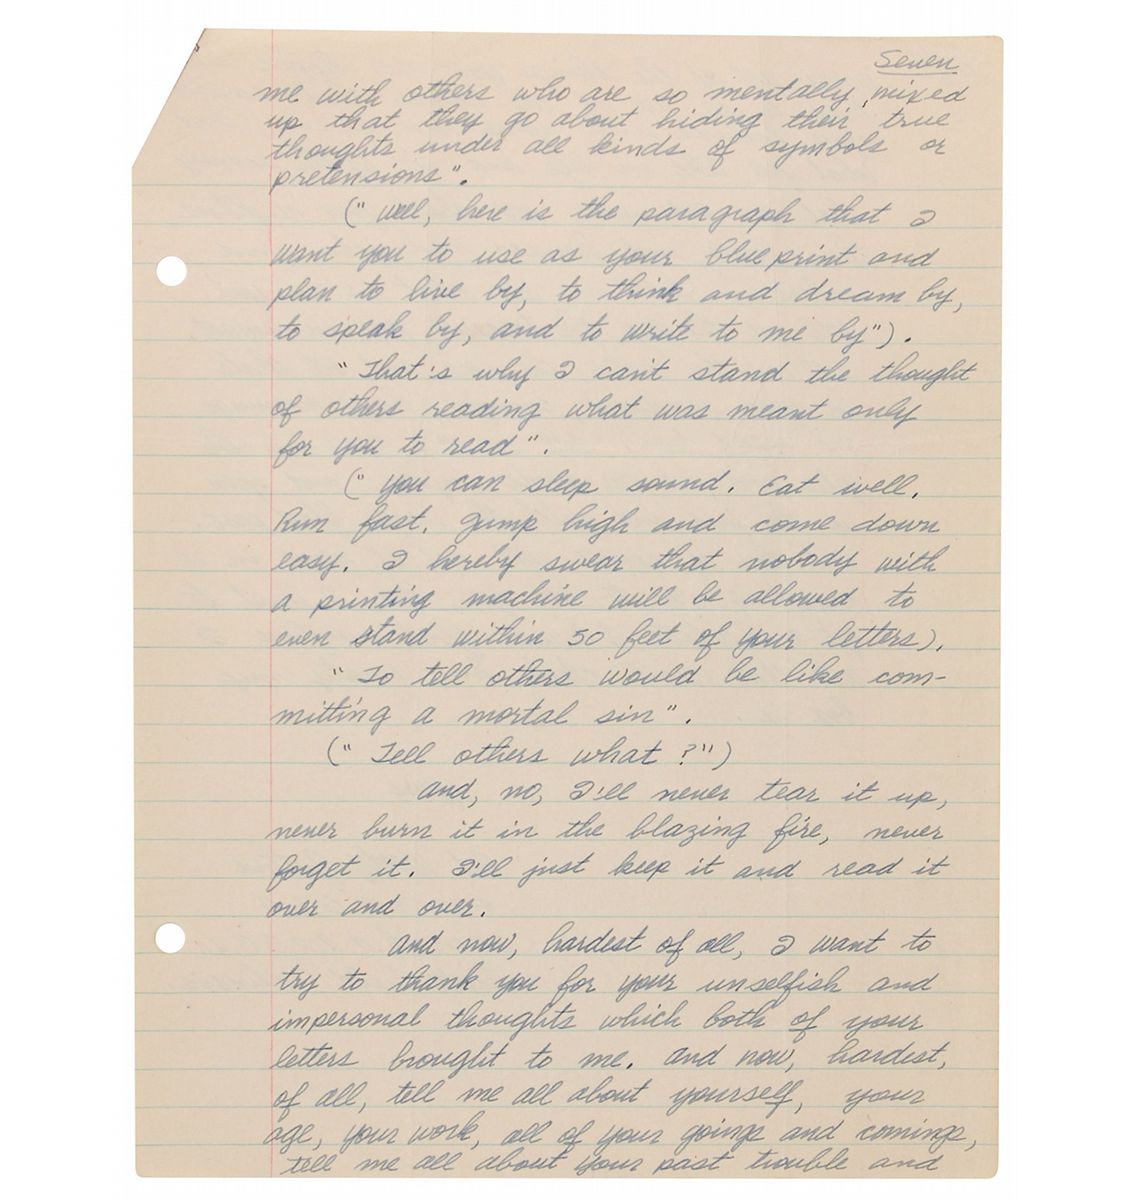 Seven
me with others who are so mentally mixed
up that they go about hiding their true
thoughts under all kinds of symbols or
pretensions".
("Well, here is the paragraph that I
want you to use as your blue print and
plan to live by, to think and dream by,
to speak by, and to write to me by").
"That's why I can't stand the thought
of others reading what was meant only
for you to read".
("You can sleep sound. Eat well.
Run fast. Jump high and come down
easy. I hereby swear that nobody with
a printing machine will be allowed to
even stand within 50 feet of your letters).
"To tell others would be like com-
mitting a mortal sin".
("Tell others what?")
And, no, I'll never tear it up,
never burn it in the blazing fire, never
forget it. I'll just keep it and read it
over and over.
And now, hardest of all, I want to
try to thank you for your unselfish and
impersonal thoughts which both of your
letters brought to me. And now, hardest,
of all, tell me all about yourself, your
age, your work, all of your goings and comings,
tell me all about your past trouble and